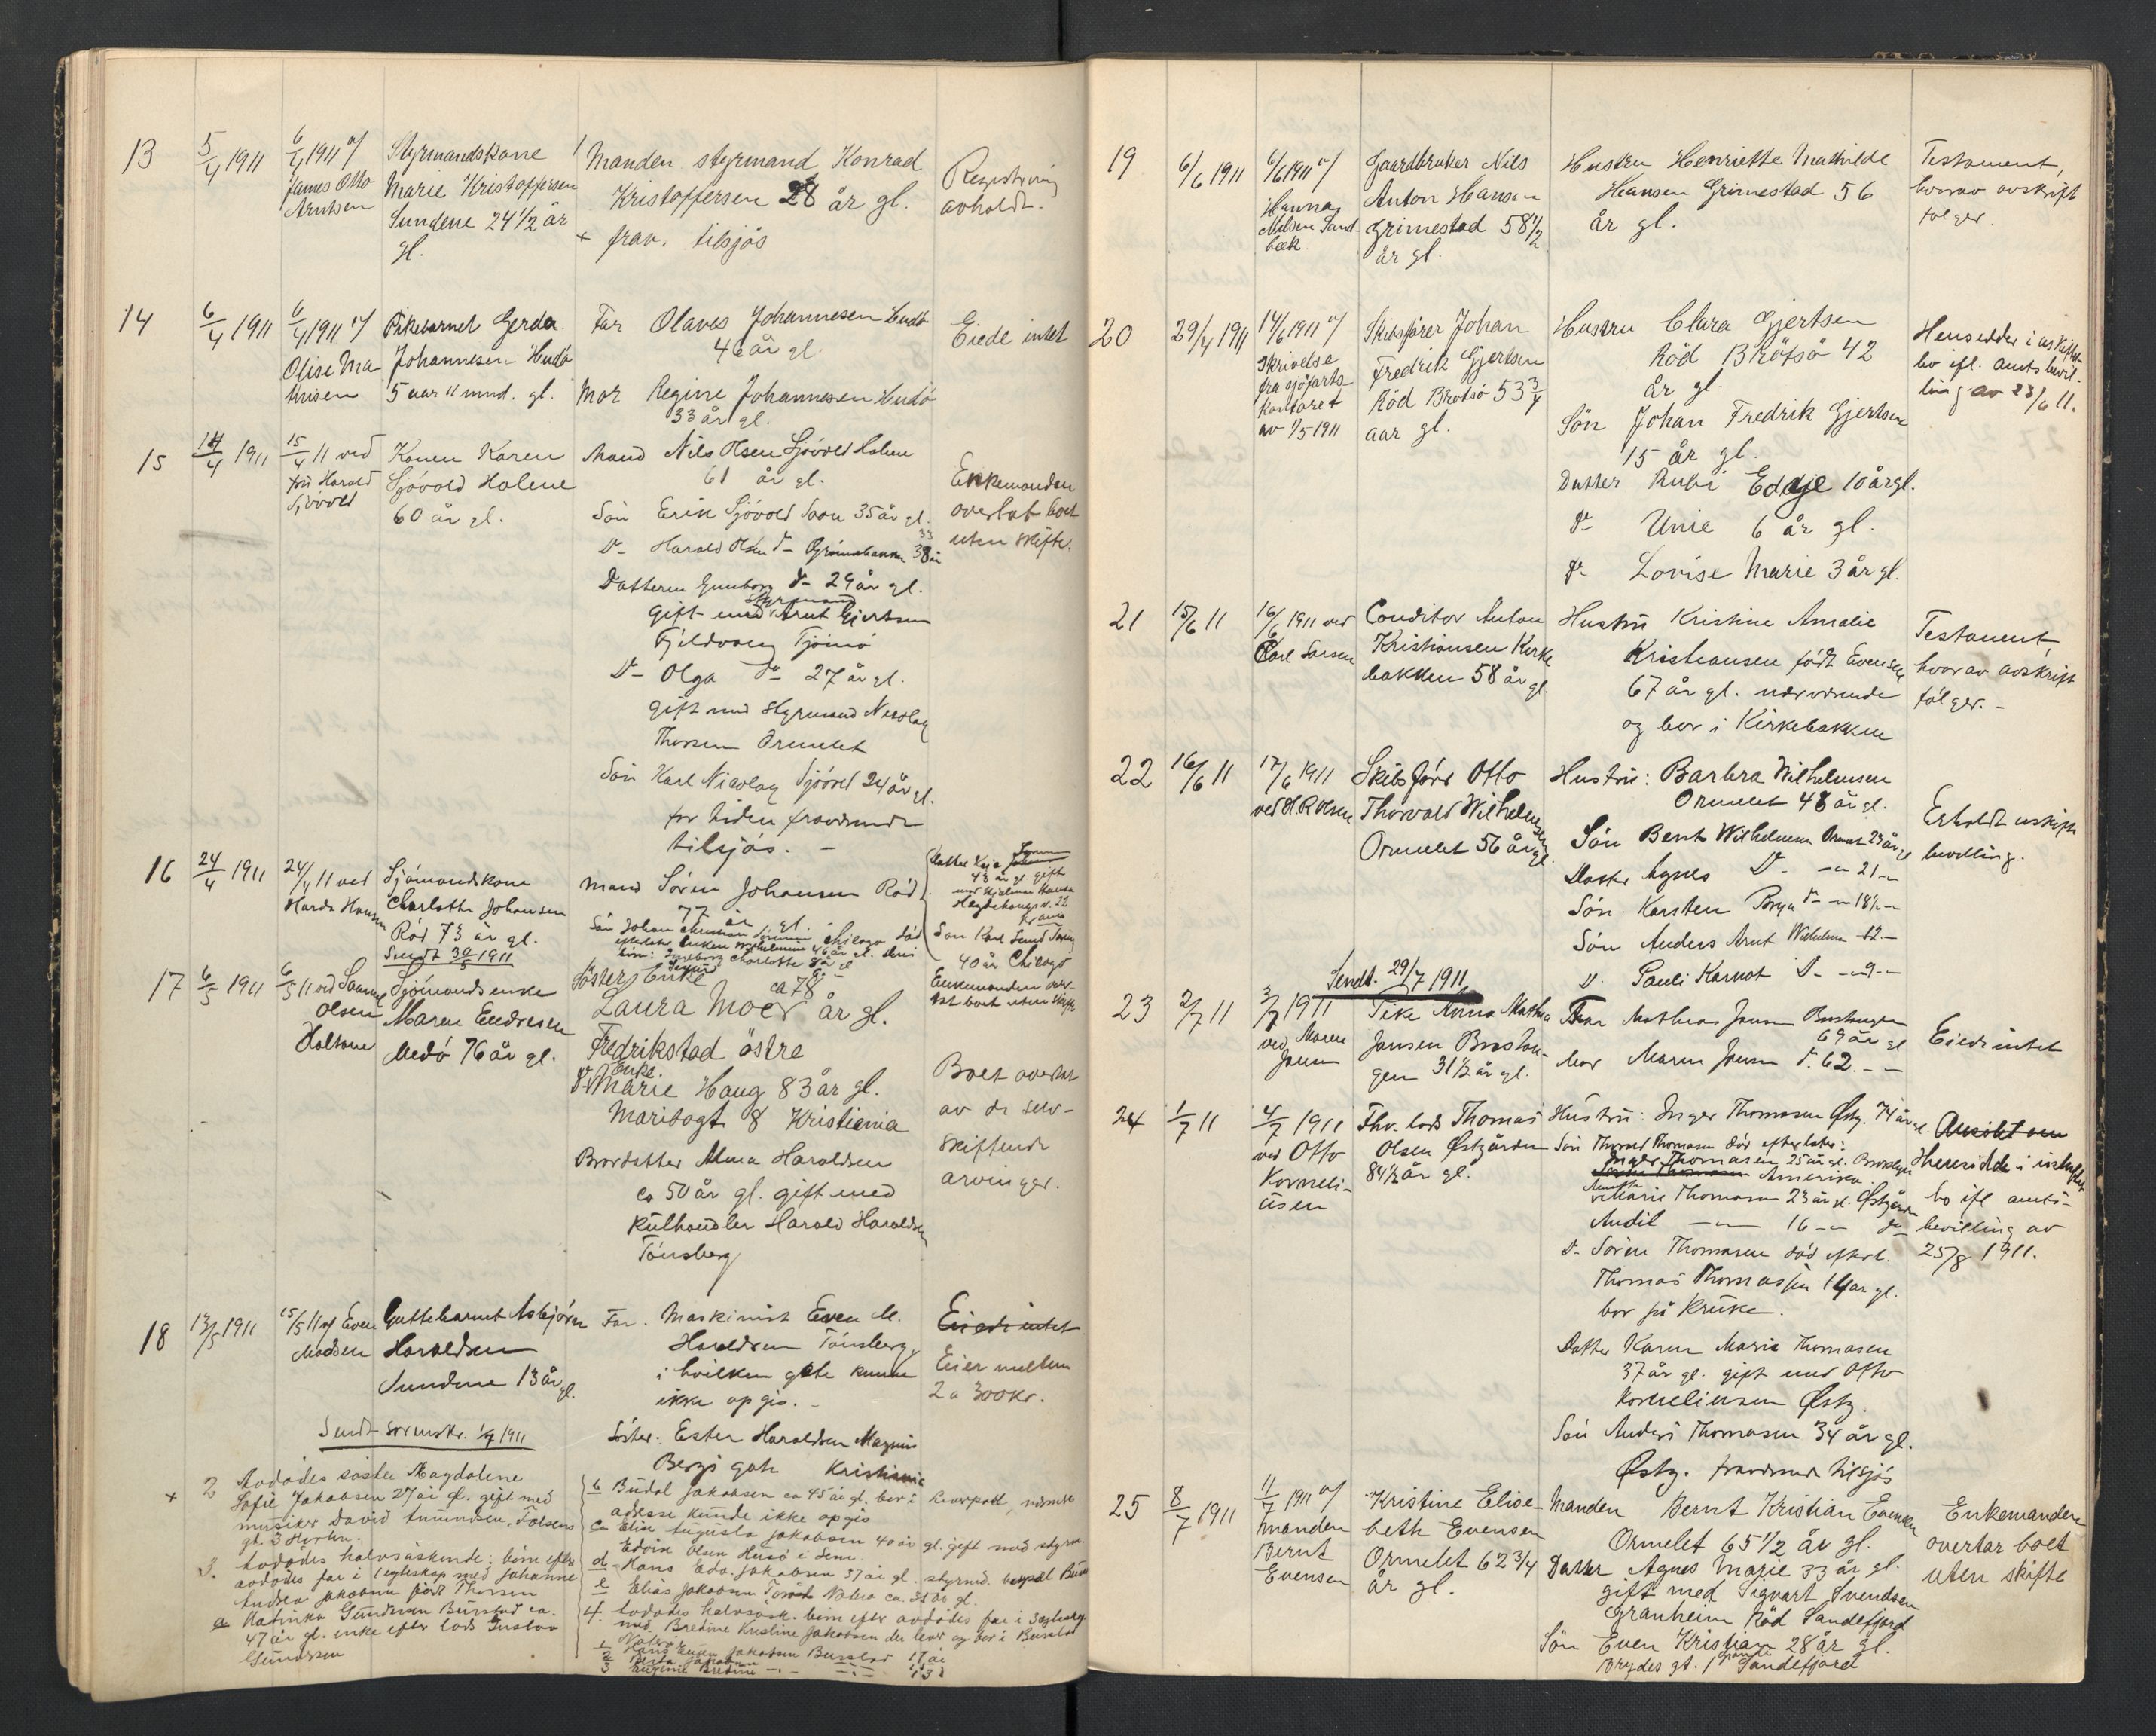 13
5/4 1911
6/4 1911 v/
James Otto
Arntsen
Styrmandskone
Marie Kristoffersen
Sundene 24 1/2 år
gl.
1 Manden styrmand Konrad
Kristoffersen 28 år gl.
+ frav. tilsjös
Registrering
avholdt.
14
6/4 1911
6/4 1911 v/
Olise Ma
thisen
Pikebarnet Gerda
Johannesen Hudö
5 aar 11 mnd. gl.
Far Olaves Johannesen Hudö
46 år gl.
Mor Regine Johannesen Hudö
33 år gl.
Eiede intet
15
14/4 1911
15/4 11 ved
fru Harald
Sjövold
Konen Karen
Sjövold Holene
60 år gl.
Mand Nils Olsen Sjövold Holene
61 år gl.
Sön Erik Sjövold Soon 35 år gl.
D- Harald Olsen d- 33
Datteren Gunborg d- 29 år gl.
gift med styrmand Arnt Gjertsen
Fjeldvang Tjömö
D- Olga d- 27 år gl.
gift med styrmand Nicolay
Thorsen Ormelet
Sön Karl Nicolay Sjövold 24 år gl.
for tiden fraværende
tilsjös. -
Enkemanden
overtat boet
uten skifte.
16
24/4 1911
24/4 11 ved
Harda Hansen
Sjömandskone
Charlotte Johansen
Röd 73 år gl.
Sendt 30/5 1911
Mand Sören Johansen Röd
77 år gl.
Sön Johan Christian Chicago död
efterlater enken Wilhelmine 46 år gl.
Ingeborg Charlotte 8 år
Datter Kaja
43 år gl gift
med Hjelmar Hansen
Hegdehaugsv. 22
Kr.ania
Sön Karl
40 år Chicago
Enkemanden over-
tat boet uten skifte
17
6/5 1911
6/5 11 ved Samuel
Olsen
Holtane
Sjömandsenke
Maren Endresen
Medö 76 år gl.
Söster Enke
Laura Moer ca 78 år gl.
Fredrikstad östre
D- Enke Marie Haug 83 år gl.
Maribogt 8 Kristiania
Brordatter Alma Haraldsen
ca 50 år gl. gift med
Kulhandler Harald Haraldsen
Tönsberg
Boet overtat
av de selv-
skiftende
arvinger.
18
13/5 1911
15/5 11 v/ Even
Madsen
Guttebarnet Asbjörn
Haraldsen
Sundene 13 år gl.
Far. Maskinist Even M.
Haraldsen Tönsberg,
i hvilken gate kunne
ikke opgis. -
Söster: Ester Haraldsen Magnus
Bergs gate Kristiania
Eiede intet
Eier mellem
2 a 300 kr.
Sendt sorenskr. 1/7 1911
+ 2 Avdödes söster Magdalene
Sofie Jakobsen 27 år gl. gift med
musiker David Amundsen, Falsens
gt. 3 Horten.
3. Avdödes halvsöskende: börn efter
avdödes far i 1 egteskap med Johanne
Andrea Jakobsen född Thorsen
a Katinka Gundersen Burstad ca.
47 år gl. enke efter lods Gustav
Gundersen
b Budal Jakobsen ca 45 år gl. bor i Liverpool, nærmere
adresse kunde ikke opgis
c Elise Augusta Jakobsen 40 år gl. gift med styrm.
Edvin Olsen Husö i Sem.
d Hans Edv. Jakobsen 37 år gl. styrmd. bopæl
e Elias Jakobsen ca. 35 år gl.
4. Avdödes halvsösk. börn efter avdödes far i 3 egteskap
med Bredine Kristine Jakobsen der lever og bor i Burstad
1 Hans Even Jakobsen Burstad 17 år
2 Berta Jakobsen
3 Eugenie Bredine
19
6/6 1911
6/6 1911 v/
Hanna
Nilsen Sand-
bæk
Gaardbruker Nils
Anton Hansen
Grimestad 58 1/2
år gl.
Hustru Henriette Mathilde
Hansen Grimestad 56
år gl.
Testament,
hvorav avskrift
følger
20
29/4 1911
14/6 1911 v/
Skrivelse
fra sjöfarts
kontoret
av 1/5 1911
Skibsförer Johan
Fredrik Gjertsen
Röd Brötsö 53 3/4
aar gl.
Hustru Clara Gjertsen
Röd Brötsö 42
år gl.
Sön Johan Fredrik Gjertsen
15 år gl.
Datter Rubi Eddje 10 år gl.
d- Unie 6 år gl.
d- Lovise Marie 3 år gl.
Hensidder i uskiftet
bo ifl. amtsbevil-
ling av 23/6 11.
21
15/6 11
16/6 1911 ved
Carl Larsen
Conditor Anton
Kristiansen Kirke
bakken 58 år gl.
Hustru Kristine Amalie
Kristiansen född Evensen
67 år gl. nærværende
og bor i Kirkebakken
Testament,
hvorav avskrift
følger. -
22
16/6 11
17/6 1911
ved H.R. Olsen
Skibsförer Otto
Thorvald Wilhelmsen
Ormelet 56 år gl.
Hustru: Barbra Wilhelmsen
Ormelet 48 år gl.
Sön Bernt Wilhelmsen Ormelet 23 år gl
Datter Agnes D- -"- 21 -"-
Sön Karsten Brya d- -"- 18 1/2 -"-
Sön Anders Arnt Wilhelmsen 12. -
D. Pauli Karnot D- -"- 9 -"-
Erholdt uskift
bevilling.
Sendt. 29/7 1911
23
2/7 11
3/7 1911
ved Maren
Jansen
Pike Anna Mathea
Jansen Busslan-
gen 31 1/2 år gl.
Far Mathias Jansen Buslangen
69 år gl
Mor Maren Jansen d. 62. - -
Eiede intet
24
1/7 11
4/7 1911
ved Otto
Korneli-
usen
Fhv. lods Thomas
Olsen Østgården
84 1/2 år gl.
Hustru: Inger Thomasen Østg. 74 år gl.
Sön Thorvald Thomasen död efterlater:
Inger Thomasen 25 år gl. Brooklyn
Amerika
Anette Marie Thomasen 23 år gl. Østgården
Andil -"- 16 -"- do
D- Sören Thomasen död efterl.
Thomas Thomassen 14 år gl.
bor på Kruke.
Datter Karen Marie Thomasen
37 år gl. gift med Otto
Korneliussen Østg.
Sön Anders Thomasen 34 år gl.
Østg. fraværende tilsjös
Ansökt om
Hensidde i uskiftet
bo ifl amts-
bevilling av
25/8 1911.
25
8/7 1911
11/7 1911 v/
manden
Bernt
Evensen
Kristine Elise-
beth Evensen
Ormelet 62 3/4
år gl.
Manden Bernt Kristian Evensen
Ormelet 65 1/2 år gl.
Datter Agnes Marie 33 år gl.
gift med Sigvart Svendsen
Granheim Röd Sandefjord
Sön Even Kristian 28 år gl.
Brydes gt. 1 Sandefjord
Enkemanden
overtar boet
uten skifte